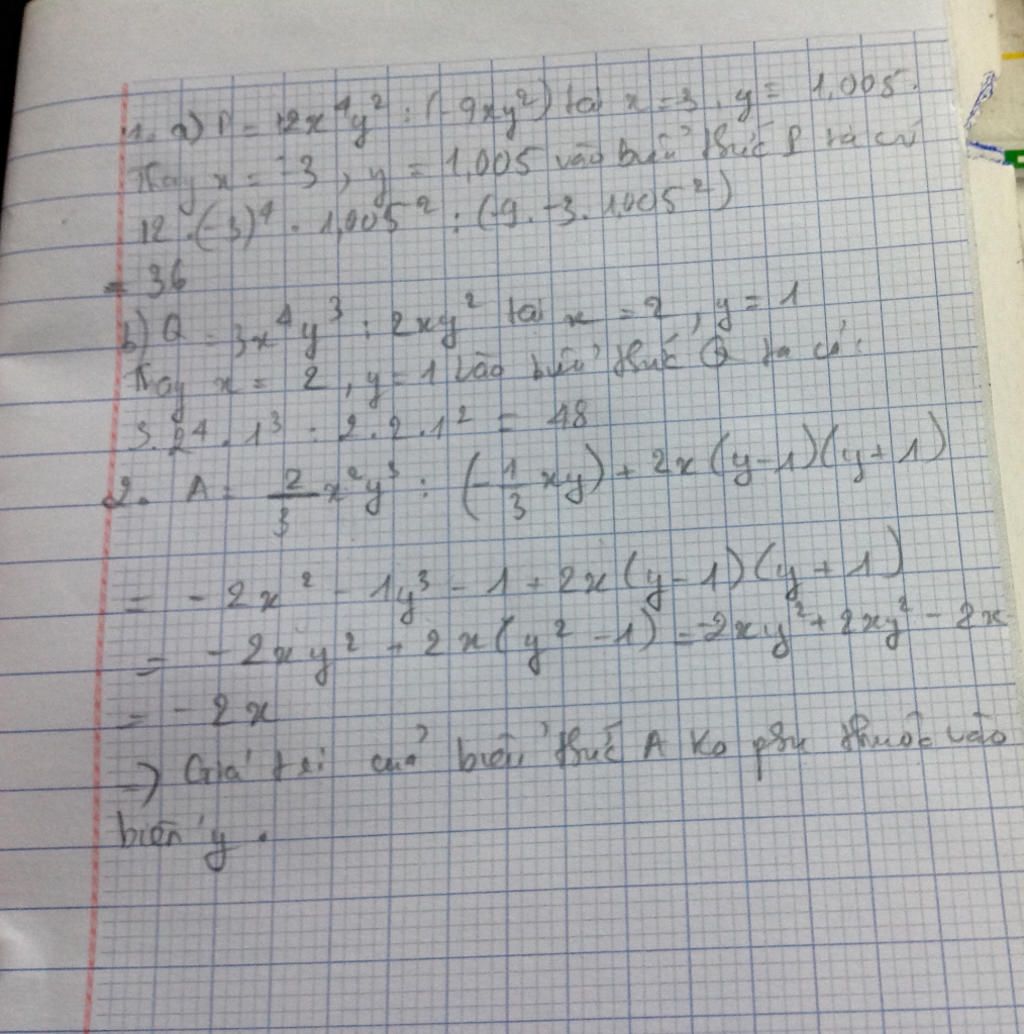 1. a) P = 12x⁴y² : (-9xy²) tại x = -3, y = 1,005.
Thay x = -3, y = 1,005 vào biểu thức P ta có
12 . (-3)⁴ . 1,005² : (-9 . -3 . 1,005²)
= 36
b) Q = 3x⁴y³ : 2xy² tại x = 2, y = 1
Thay x = 2, y = 1 vào biểu thức Q ta có:
3.2⁴ . 1³ : 2.2.1² = 48
2. A = 2/3 x²y³ : (-1/3 xy) + 2x (y-1)(y+1)
= -2x² - 1y³ - 1 + 2x (y-1)(y+1)
= -2xy² + 2x(y² - 1) = -2xy² + 2xy² - 2x
= -2x
=> Giá trị của biểu thức A ko phụ thuộc vào
biến y.